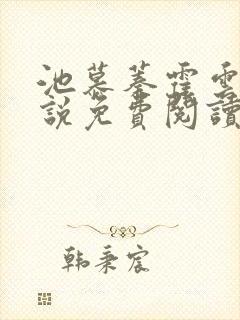 池慕蓁霆雲
說免費閱讀
韩秉宸